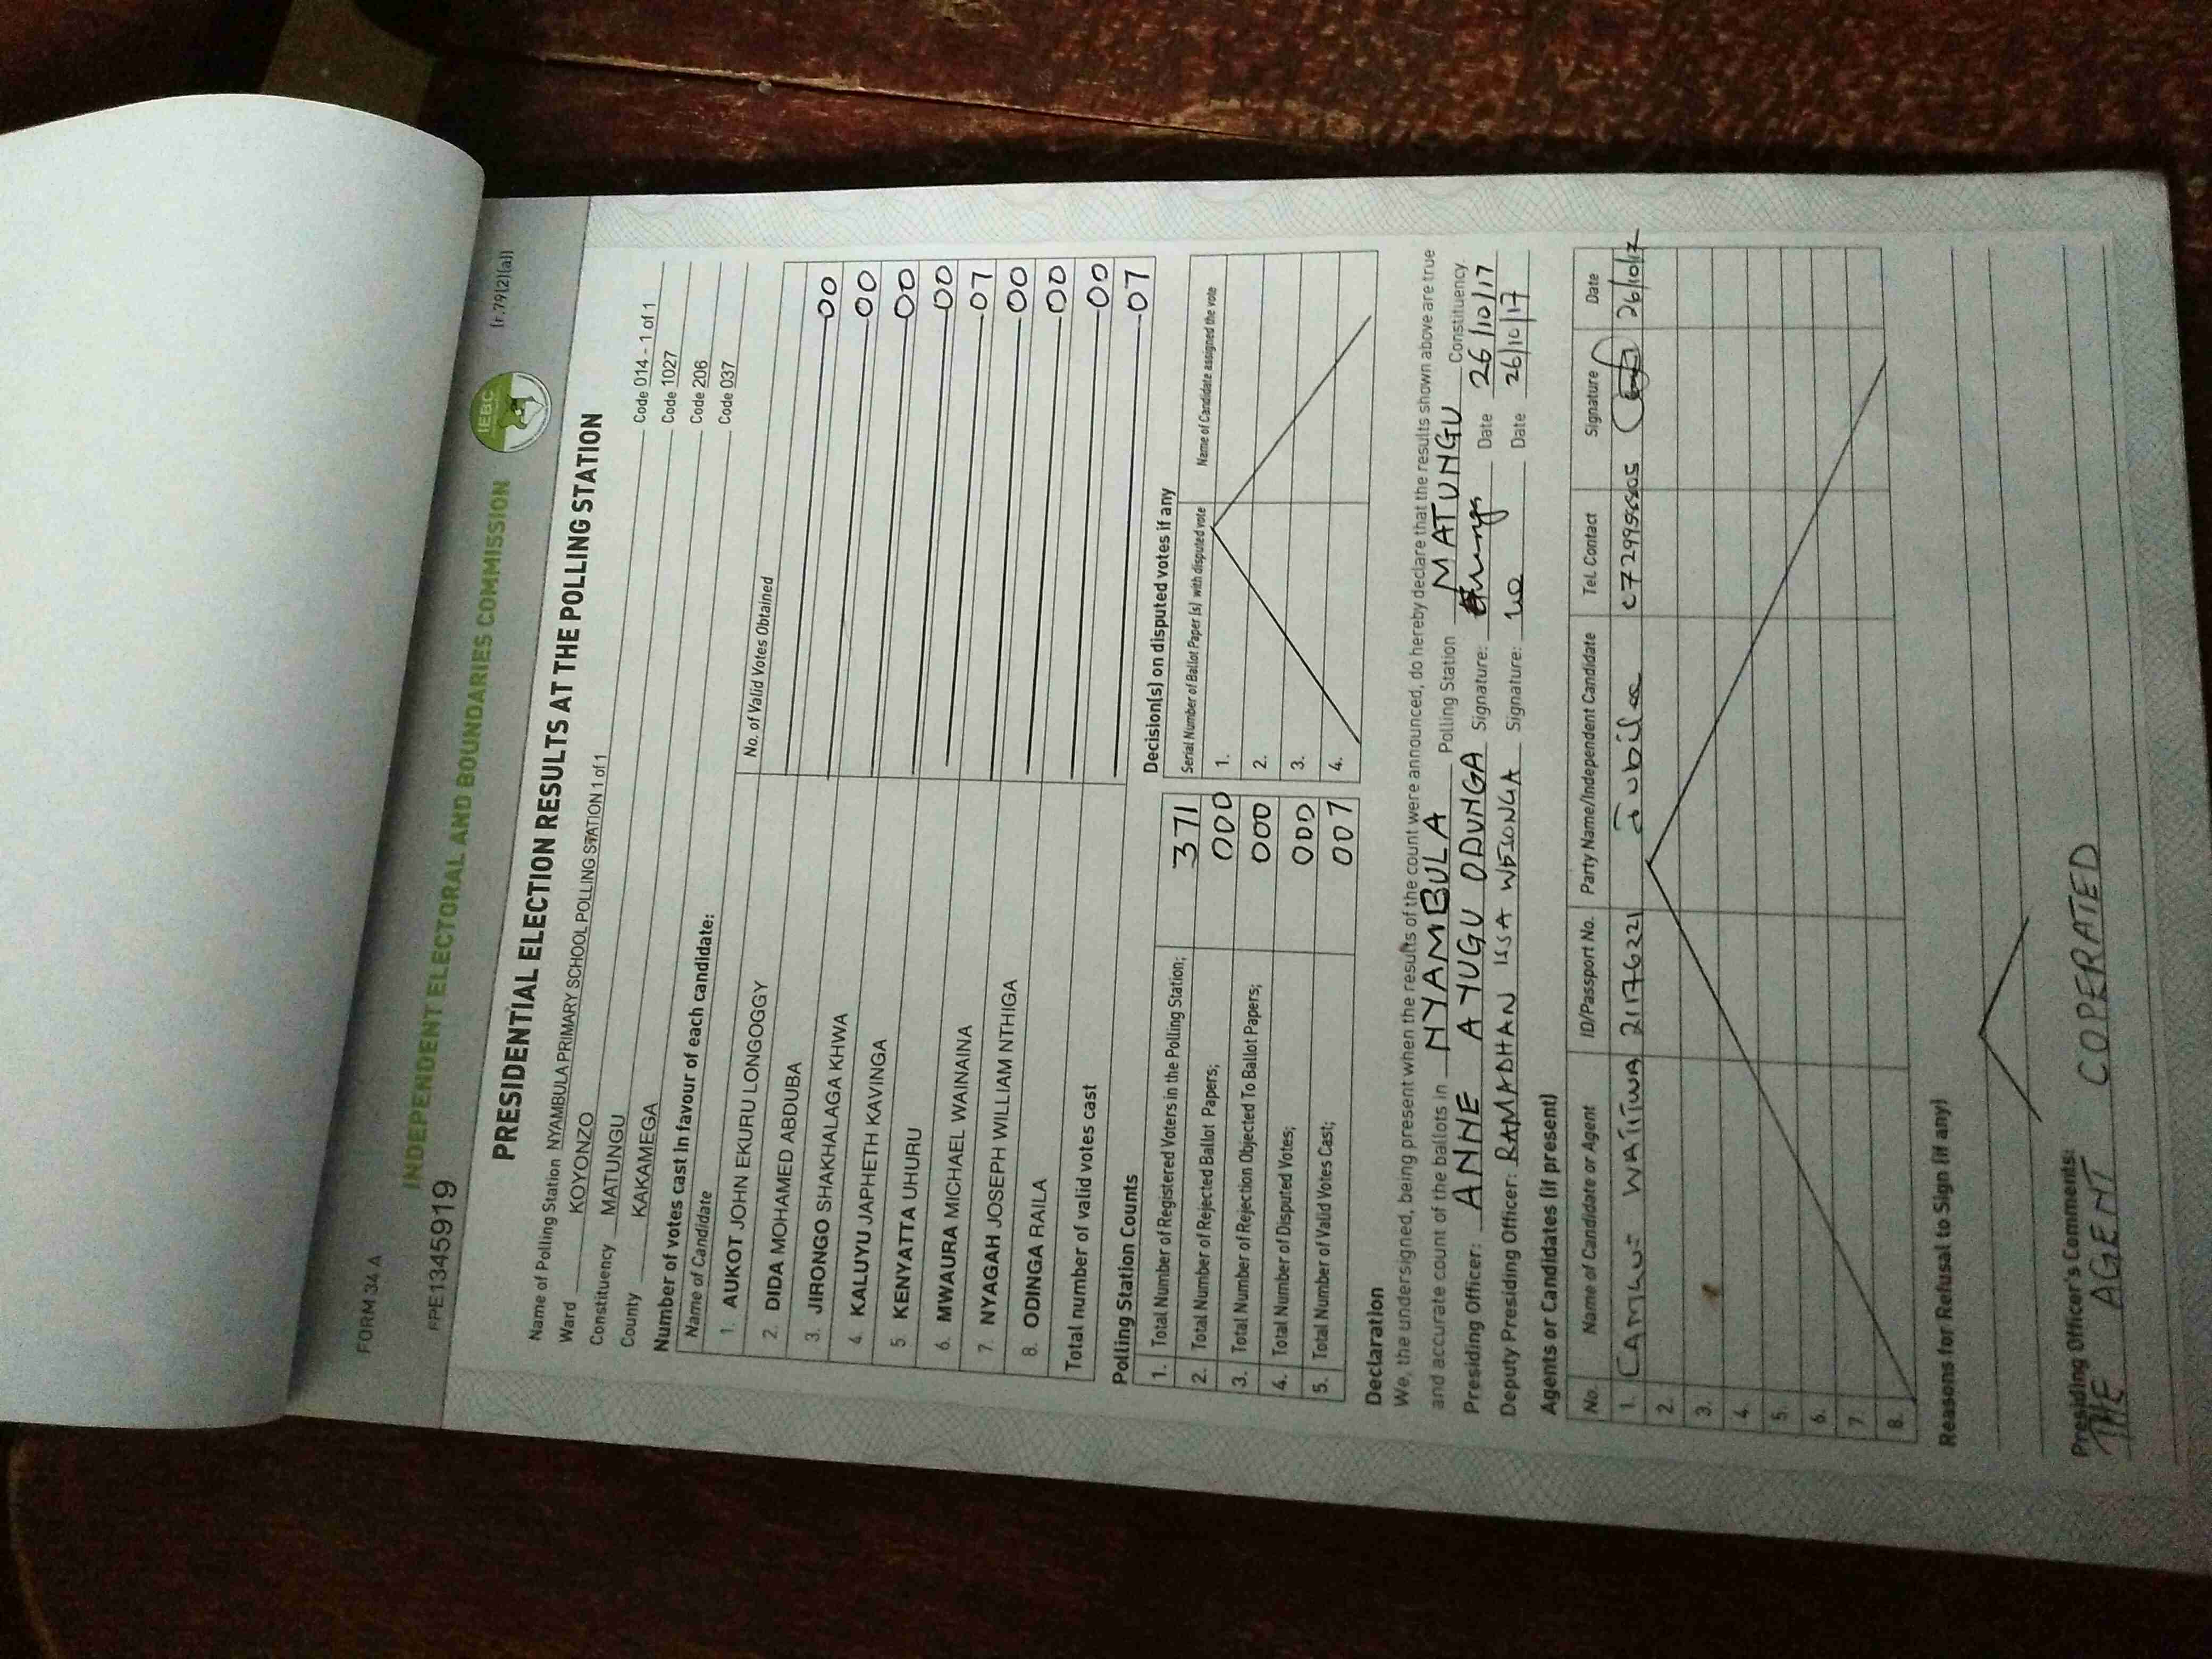 FORM 34 A
(r.79(2)(a))
INDEPENDENT ELECTORAL AND BOUNDARIES COMMISSION
IEBC
PPE13445919
PRESIDENTIAL ELECTION RESULTS AT THE POLLING STATION
Name of Polling Station NYAMBULA PRIMARY SCHOOL POLLING STATION 1 of 1 Code 014 - 1 of 1
Ward KOYONZO Code 1027
Constituency MATUNGU Code 206
County KAKAMEGA Code 037
Number of votes cast in favour of each candidate:
Name of Candidate No. of Valid Votes Obtained
1. AUKOT JOHN EKURU LONGOGGY 00
2. DIDA MOHAMED ABDUBA 00
3. JIRONGO SHAKHALAGA KHWA 00
4. KALUYU JAPHETH KAVINGA 00
5 KENYATTA UHURU 07
6. MWAURA MICHAEL WAINAINA 00
7. NYAGAH JOSEPH WILLIAM NTHIGA 00
8. ODINGA RAILA 00
Total number of valid votes cast 07
Polling Station Counts
1. Total Number of Registered Voters in the Polling Station; 371
2. Total Number of Rejected Ballot Papers; 000
3. Total Number of Rejection Objected To Ballot Papers; 000
4. Total Number of Disputed Votes; 000
5. Total Number of Valid Votes Cast; 007
Decision(s) on disputed votes if any
Serial Number of Ballot Paper (s) with disputed vote Name of Candidate assigned the vote
1.
2.
3.
4.
Declaration
We, the undersigned, being present when the results of the count were announced, do hereby declare that the results shown above are true
and accurate count of the ballots in NYAMBULA Polling Station MATUNGU Constituency.
Presiding Officer: ANNE AYUGU ODUNGA Signature: Date 26/10/17
Deputy Presiding Officer: RAMADHAN ISSA WESONGA Signature: Date 26/10/17
Agents or Candidates (if present)
No. Name of Candidate or Agent ID/Passport No. Party Name/Independent Candidate Tel. Contact Signature Date
1. 21176221 Jubilee 26/10/17
2.
3.
4.
5.
6.
7.
8.
Reasons for Refusal to Sign (if any)
Presiding Officer's Comments:
THE AGENT COPERATED